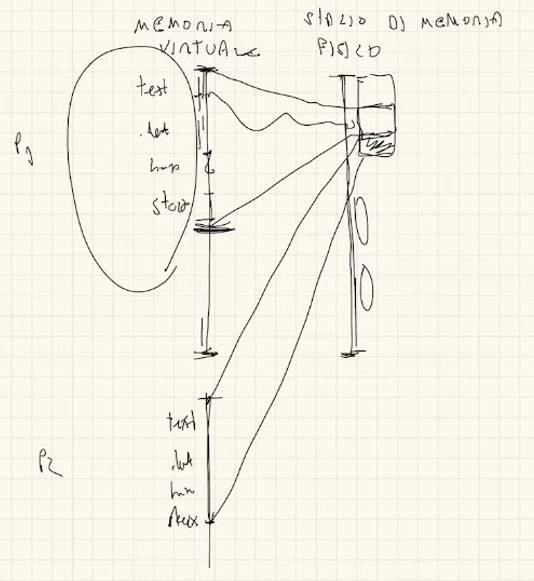 MEMORIA
VIRTUALE
SPAZIO DI MEMORIA
FISICO
text
.dat
P1
heap
stack
text
.dat
P2
heap